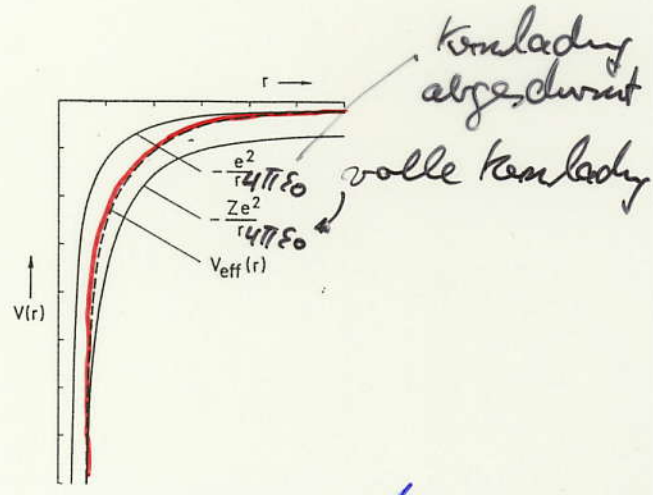 Kernladung
abgeschirmt
r →
- e²/r 4πε₀
volle Kernladung
- Ze²/r 4πε₀
V_eff(r)
V(r)